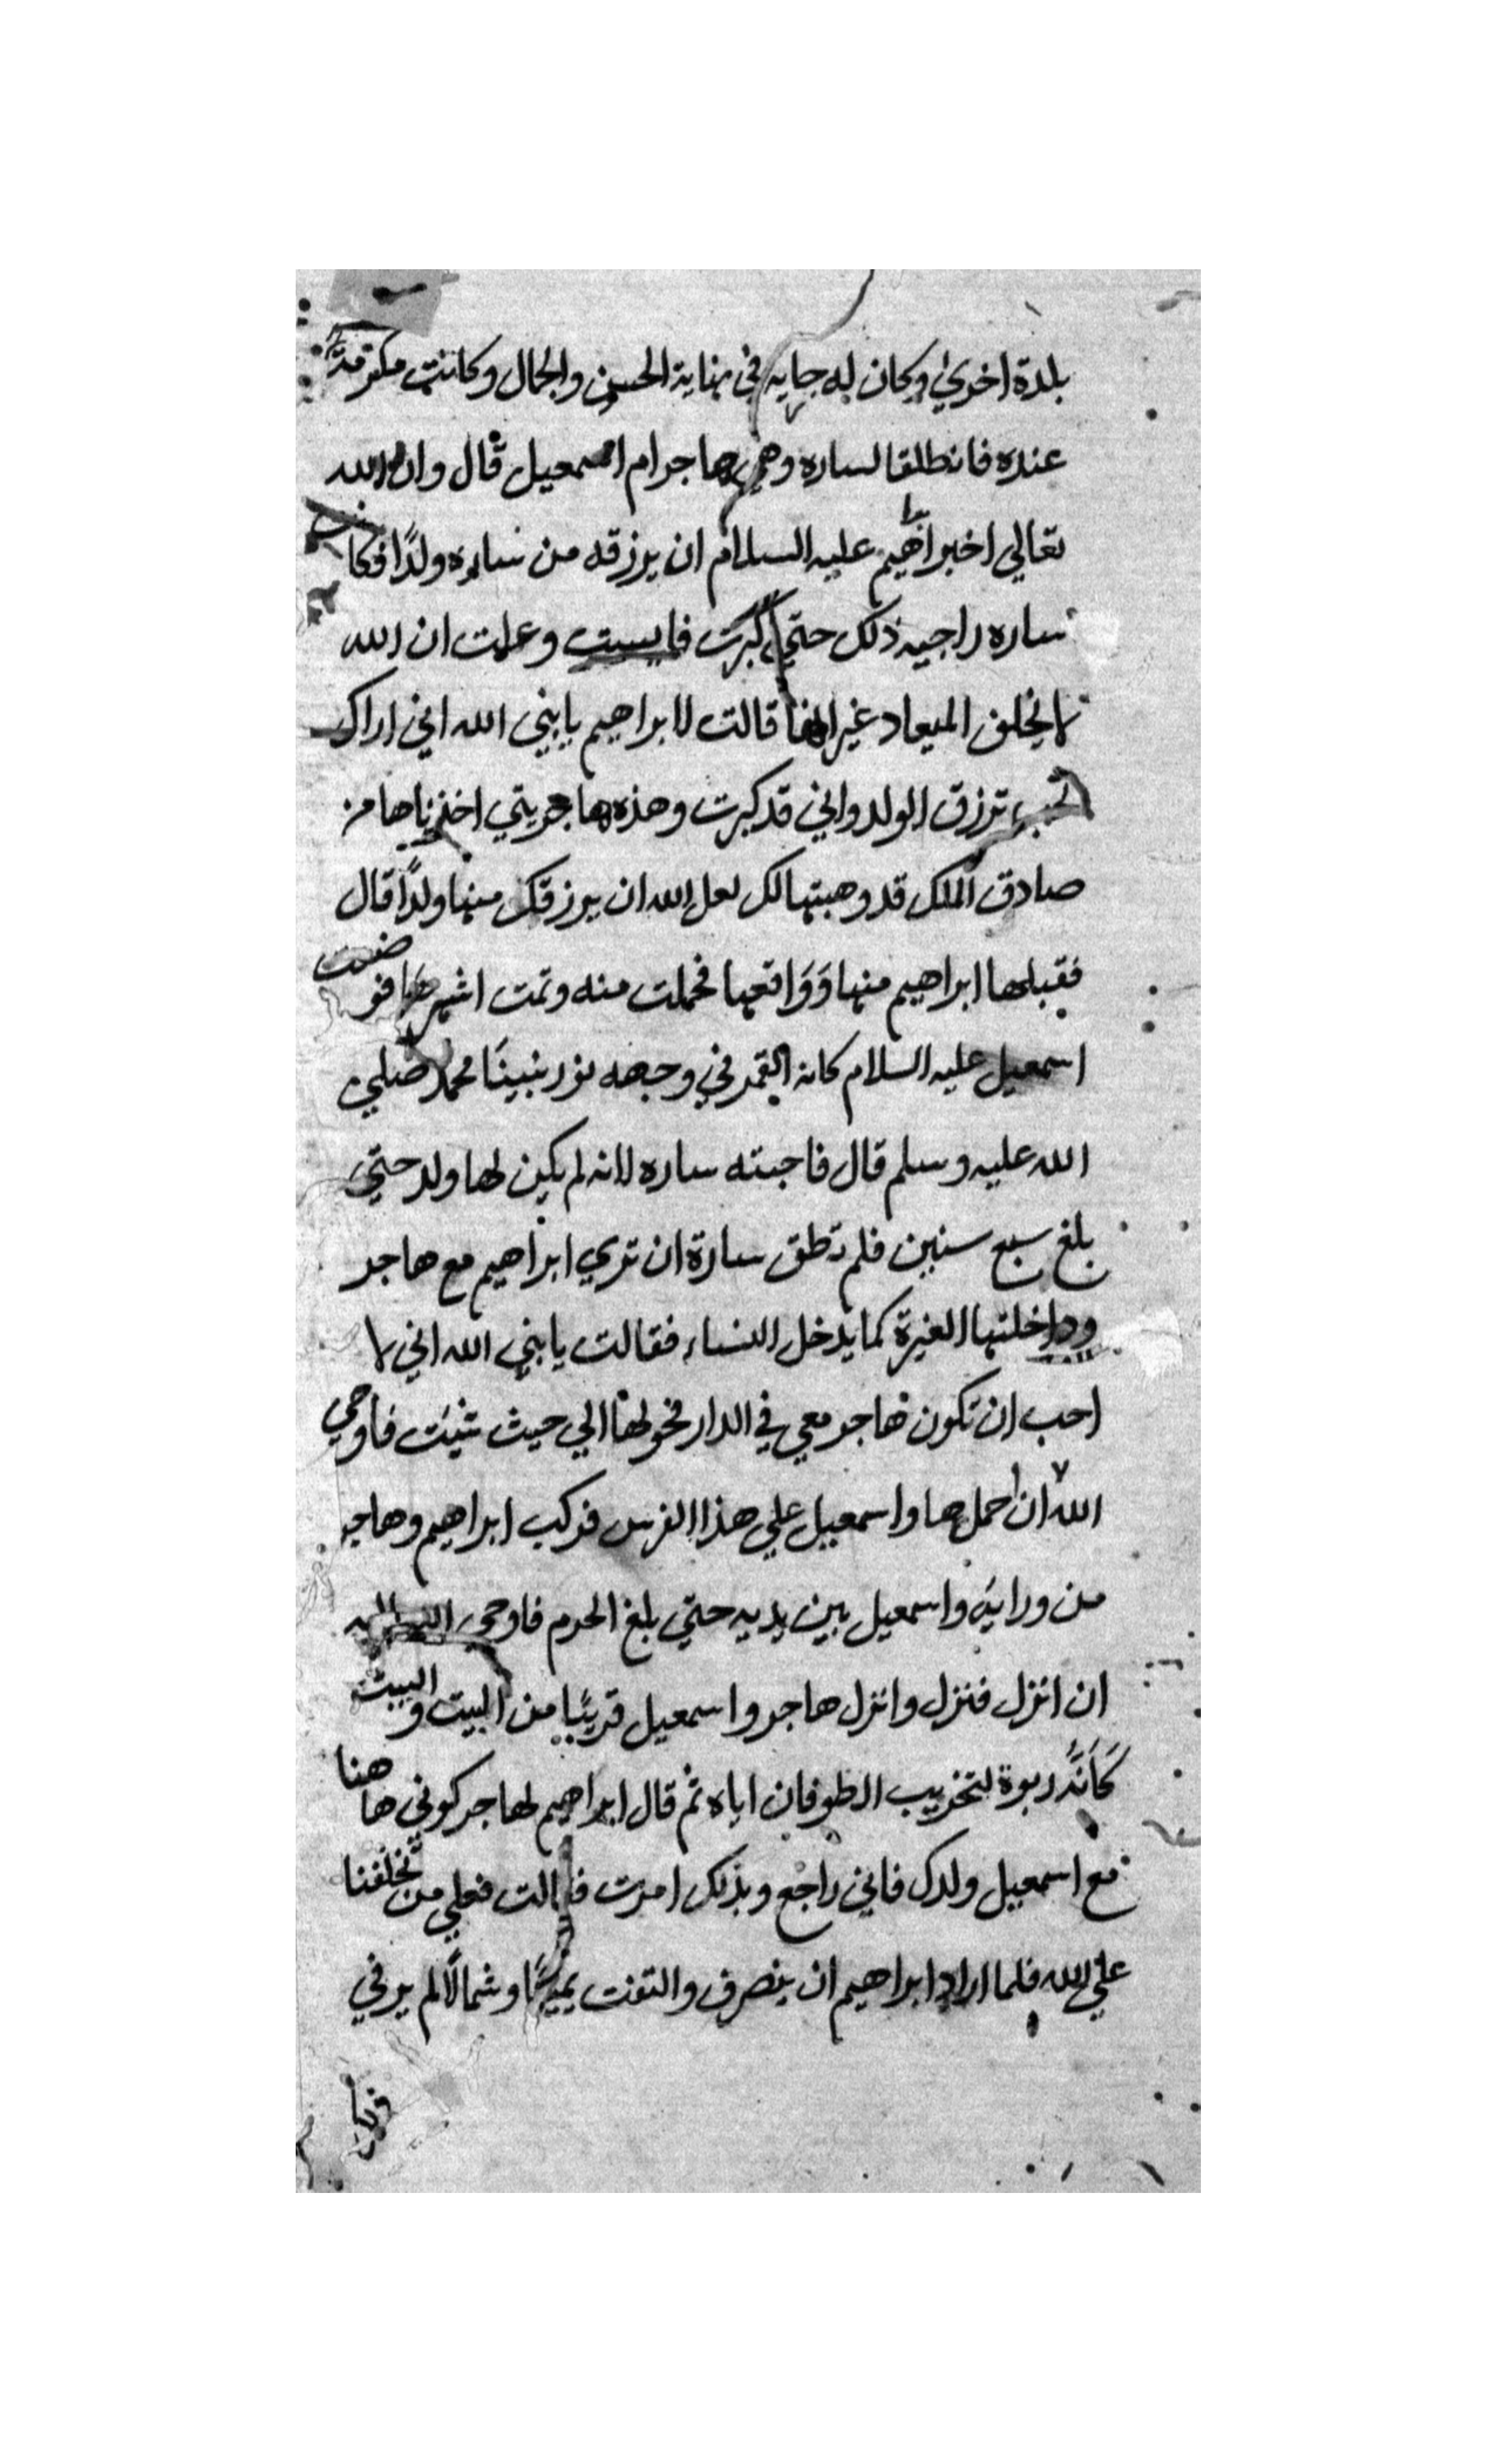 بلدة اخري وكان له جايه في نهاية الحسن والجمال وكانت مكرمة
عنده فانطلقا لساره وهي هاجر ام اسمعيل قال وان الله
تعالي اخبر ابراهيم عليه السلام ان يرزقه من ساره ولدًا فكانت
ساره راجيه ذلك حتي كبرت فايست وعلمت ان الله
لا يخلف الميعاد غير انها قالت لابراهيم يا نبي الله اني اراك
تحب ترزق الولد واني قد كبرت وهذه هاجر يتي اخذناها من
صادق الملك قد وهبتها لك لعل الله ان يرزقك منها ولدًا قال
فقبلها ابراهيم منها وَوَاقعها فحملت منه وتمت اشهرها فوضعت
اسمعيل عليه السلام كانه القمر في وجهه نور نبينَا محمد صلي
الله عليه وسلم قال فاحبته ساره لانه لم يكن لها ولد حتي
بلغ سبع سنين فلم تطق سارة ان تري ابراهيم مع هاجر
وداخلتها الغيرة كما يدخل النساء فقالت يا نبي الله اني لا
احب ان تكون هاجر معي في الدار فحولها الي حيث شيت فاوحي
الله ان احملها واسمعيل علي هذا الفرس فركب ابراهيم وهاجر
من ورايه واسمعيل بين يديه حتي بلغ الحرم فاوحي الله اليه
ان انزل فنزل وانزل هاجر واسمعيل قريبًا من البيت والبيت
كَاَنَّه ربوة لتخريب الطوفان اياه ثم قال ابراهيم لهاجر كوني هاهنا
مع اسمعيل ولدك فاني راجع وبذلك امرت قالت فعلي من تخلفنا
علي الله فلما اراد ابراهيم ان ينصرف والتفت يمينًا وشمالًا لم ير في